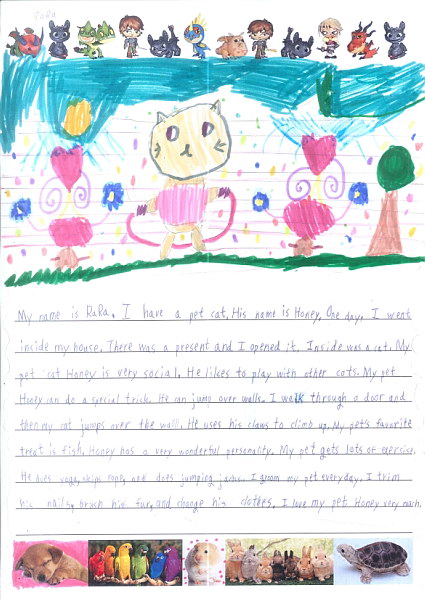 RaRa
My name is RaRa. I have a pet cat. His name is Honey. One day, I went
inside my house. There was a present and I opened it. Inside was a cat. My
pet cat Honey is very social. He likes to play with other cats. My pet
Honey can do a special trick. He can jump over walls. I walk through a door and
then my cat jumps over the wall. He uses his claws to climb up. My pet's favorite
treat is fish. Honey has a very wonderful personality. My pet gets lots of exercise.
He does yoga, skips rope, and does jumping jacks. I groom my pet everyday. I trim
his nails, brush his fur, and change his clothes. I love my pet Honey very much.